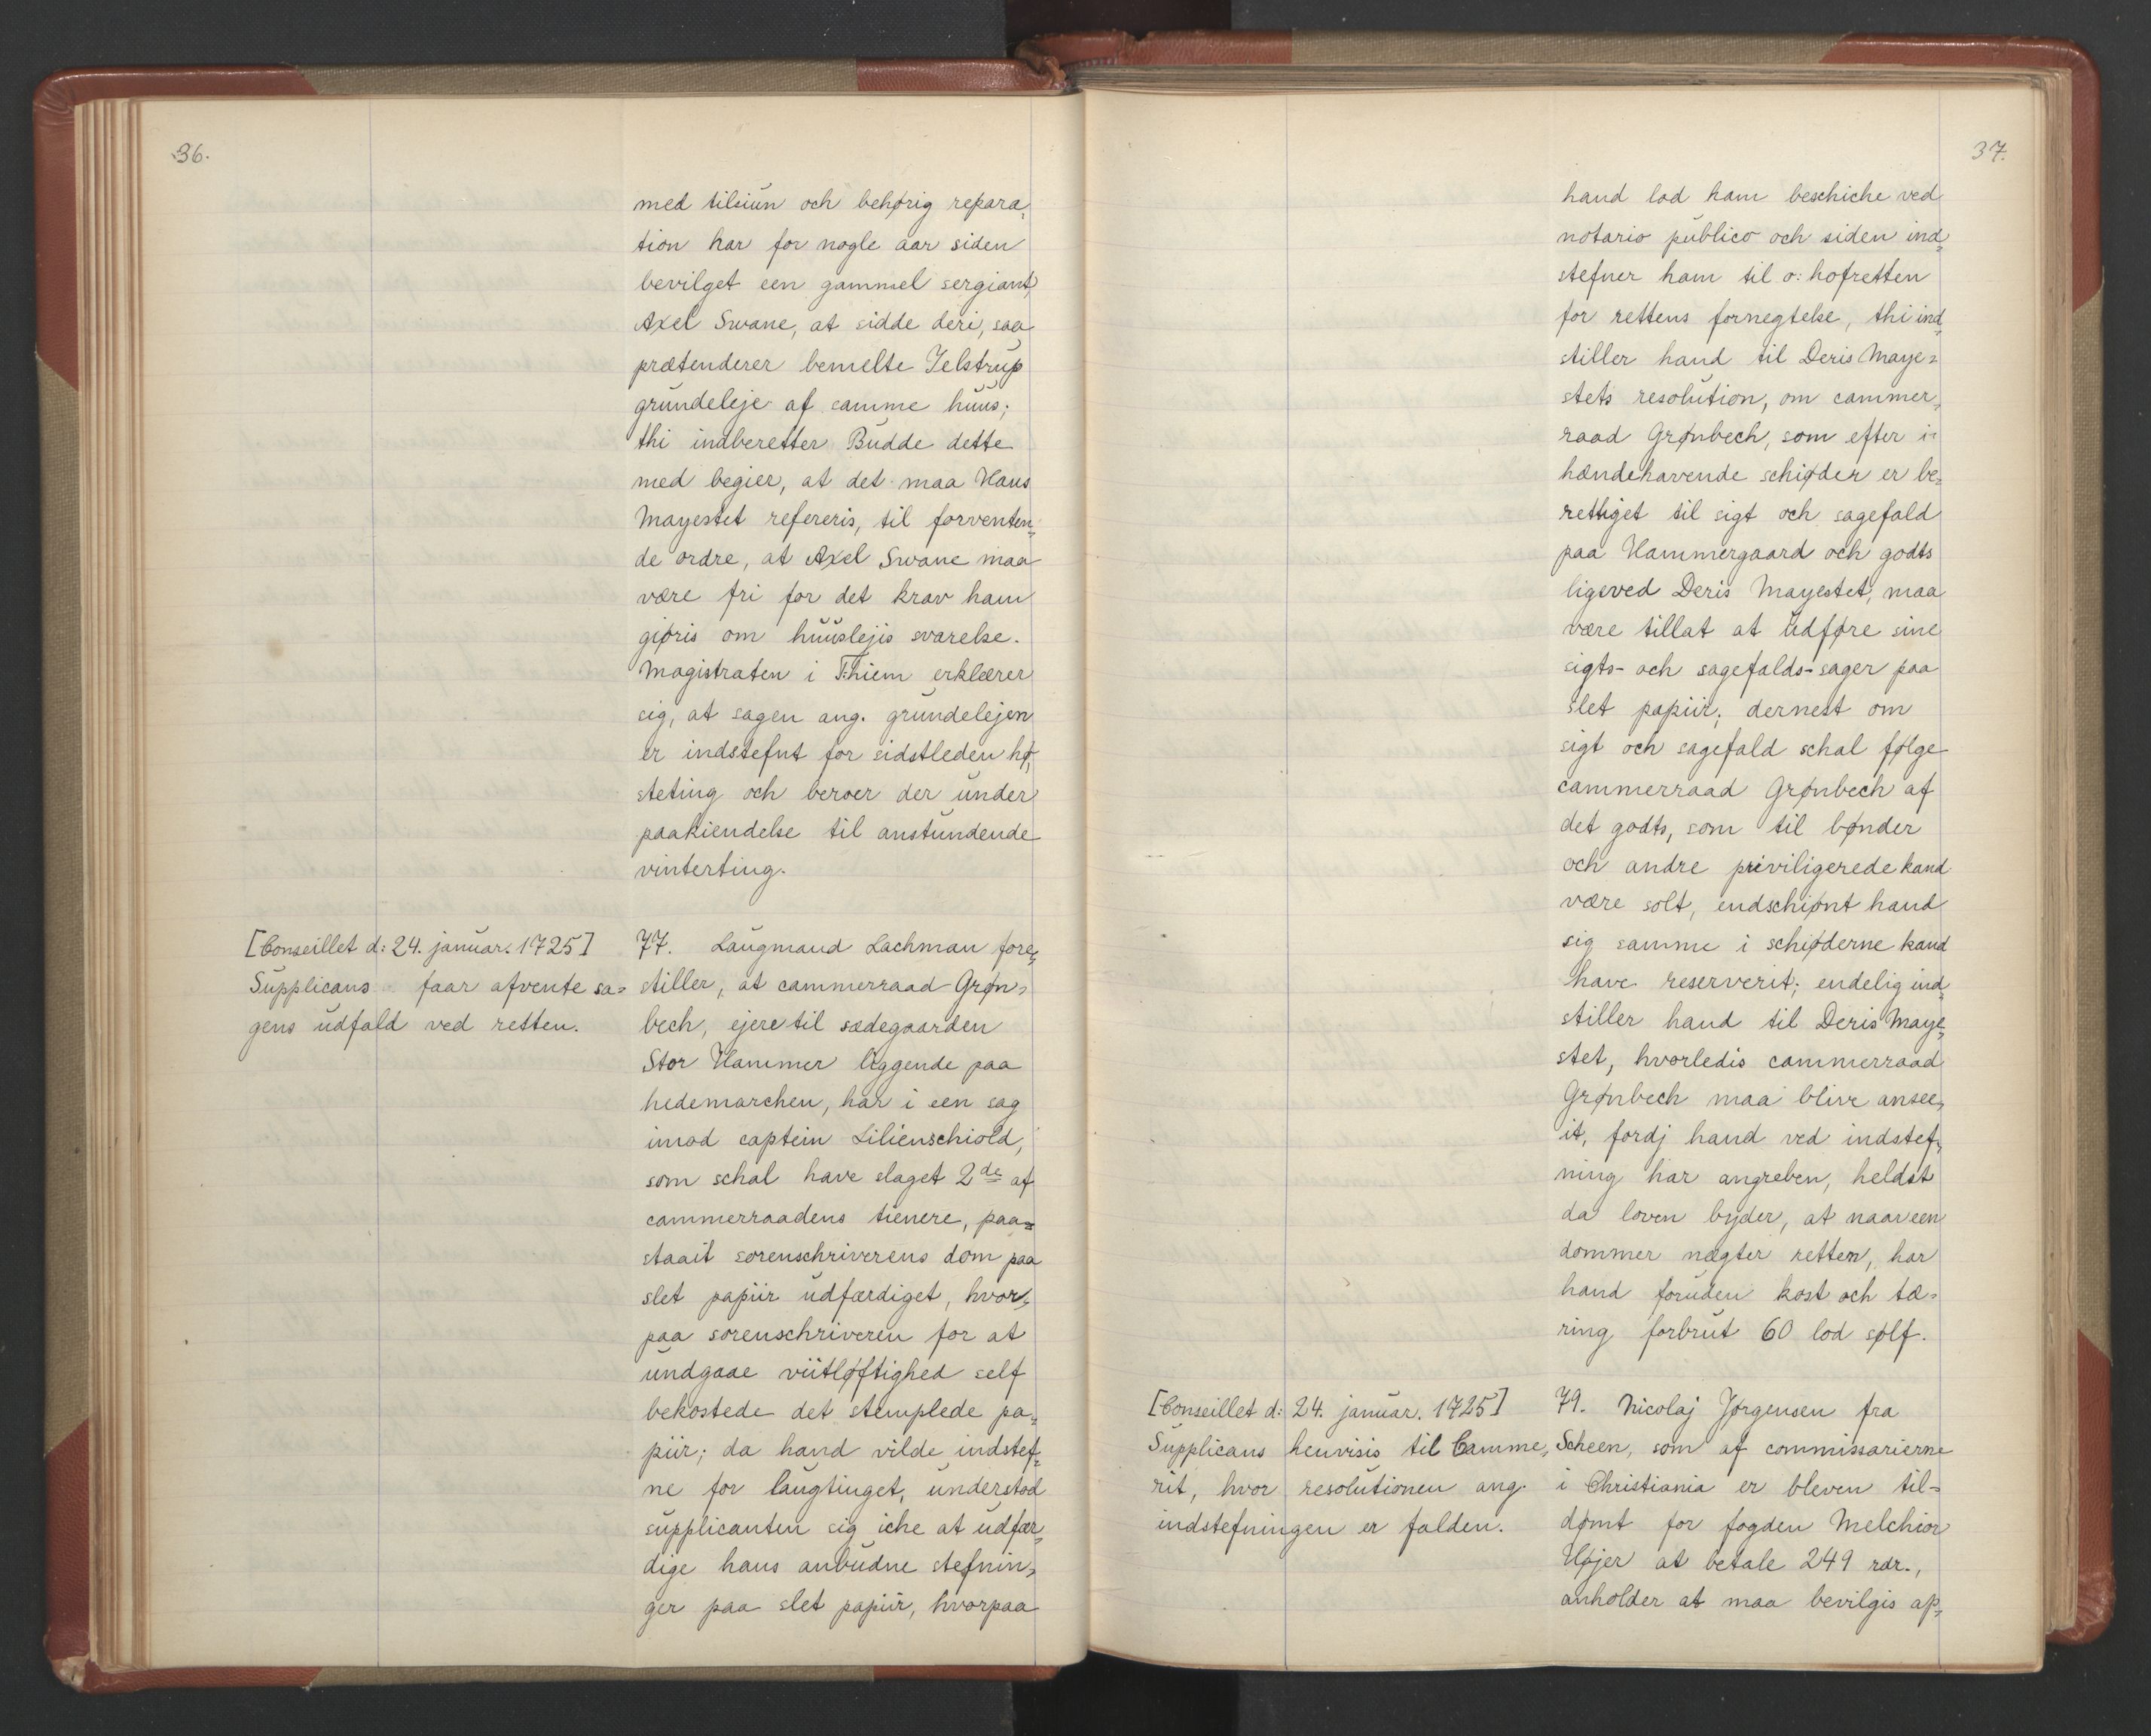 36.
med tilsiun och behørig repara„
tion har for nogle aar siden
bevilget een gammel sergiant,
Axel Swane, at sidde deri, saa
prætenderer bemelte Jelstrup
grundeleje af samme huus;
thi indberetter Budde dette
med begier, at det maa Hans
Mayestet refereris, til forventen„
de ordre, at Axel Swane maa
være fri for det krav ham
giøris om huuslejis svarelse.
Magistraten i T:hiem erklærer
sig, at sagen ang. grundelejen
er indstefnt for sidstleden hø„
steting och beroer der under
paakiendelse til anstundende
vinterting.
[Conseillet d: 24. januar. 1725]
Supplicans faar afvente sa=
gens udfald ved retten.
77. Laugmand Lachman fore„
stiller, at cammerraad Grøn„
bech, ejere til sædegaarden
Stor Hammer liggende paa
hedemarchen, har i een sag
imod captein Lilienschiold,
som schal have slaget 2de af
cammerraadens tienere, paa=
staait sorenschriverens dom paa
slet papiir udfærdiget, hvor„
paa sorenschriveren for at
undgaae viitløftighed self
bekostede det stemplede pa„
piir; da hand vilde indstef„
ne for laugtinget, understod
supplicanten sig iche at udfær„
dige hans anbudne stefnin„
ger paa slet papiir, hvorpaa
37.
hand lod ham beschiche ved
notario publico och siden ind„
stefner ham til o: hofretten
for rettens fornegtelse, thi ind„
stiller hand til Deris Maye=
stets resolution, om cammer„
raad Grønbech, som efter i
hændehavende schiøder er be„
rettiget til sigt och sagefald
paa Hammergaard och godts
ligeved Deris Mayestet, maa
være tillat at udføre sine
sigts- och sagefalds-sager paa
slet papiir; dernest om
sigt och sagefald schal følge
cammerraad Grønbech af
det godts, som til bønder
och andre priviligerede kand
være solt, endschiønt hand
sig samme i schiøderne kand
have reserverit; endelig ind„
stiller hand til Deris Maye„
stet, hvorledis cammerraad
Grønbech maa blive ansee„
it, fordj hand ved indstef„
ning har angreben, heldst
da loven byder, at naar een
dommer nægter retten, har
hand foruden kost och tæ=
ring forbrut 60 lod sølf.
[Conseillet d: 24. januar. 1725]
Supplicans henvisis til Camme„
rit, hvor resolutionen ang.
indstefningen er falden.
79. Nicolaj Jørgensen fra
Scheen, som af commissarierne
i Christiania er bleven til=
dømt for fogden Melchior
Højer at betale 249 rdr.,
anholder at maa bevilgis ap„